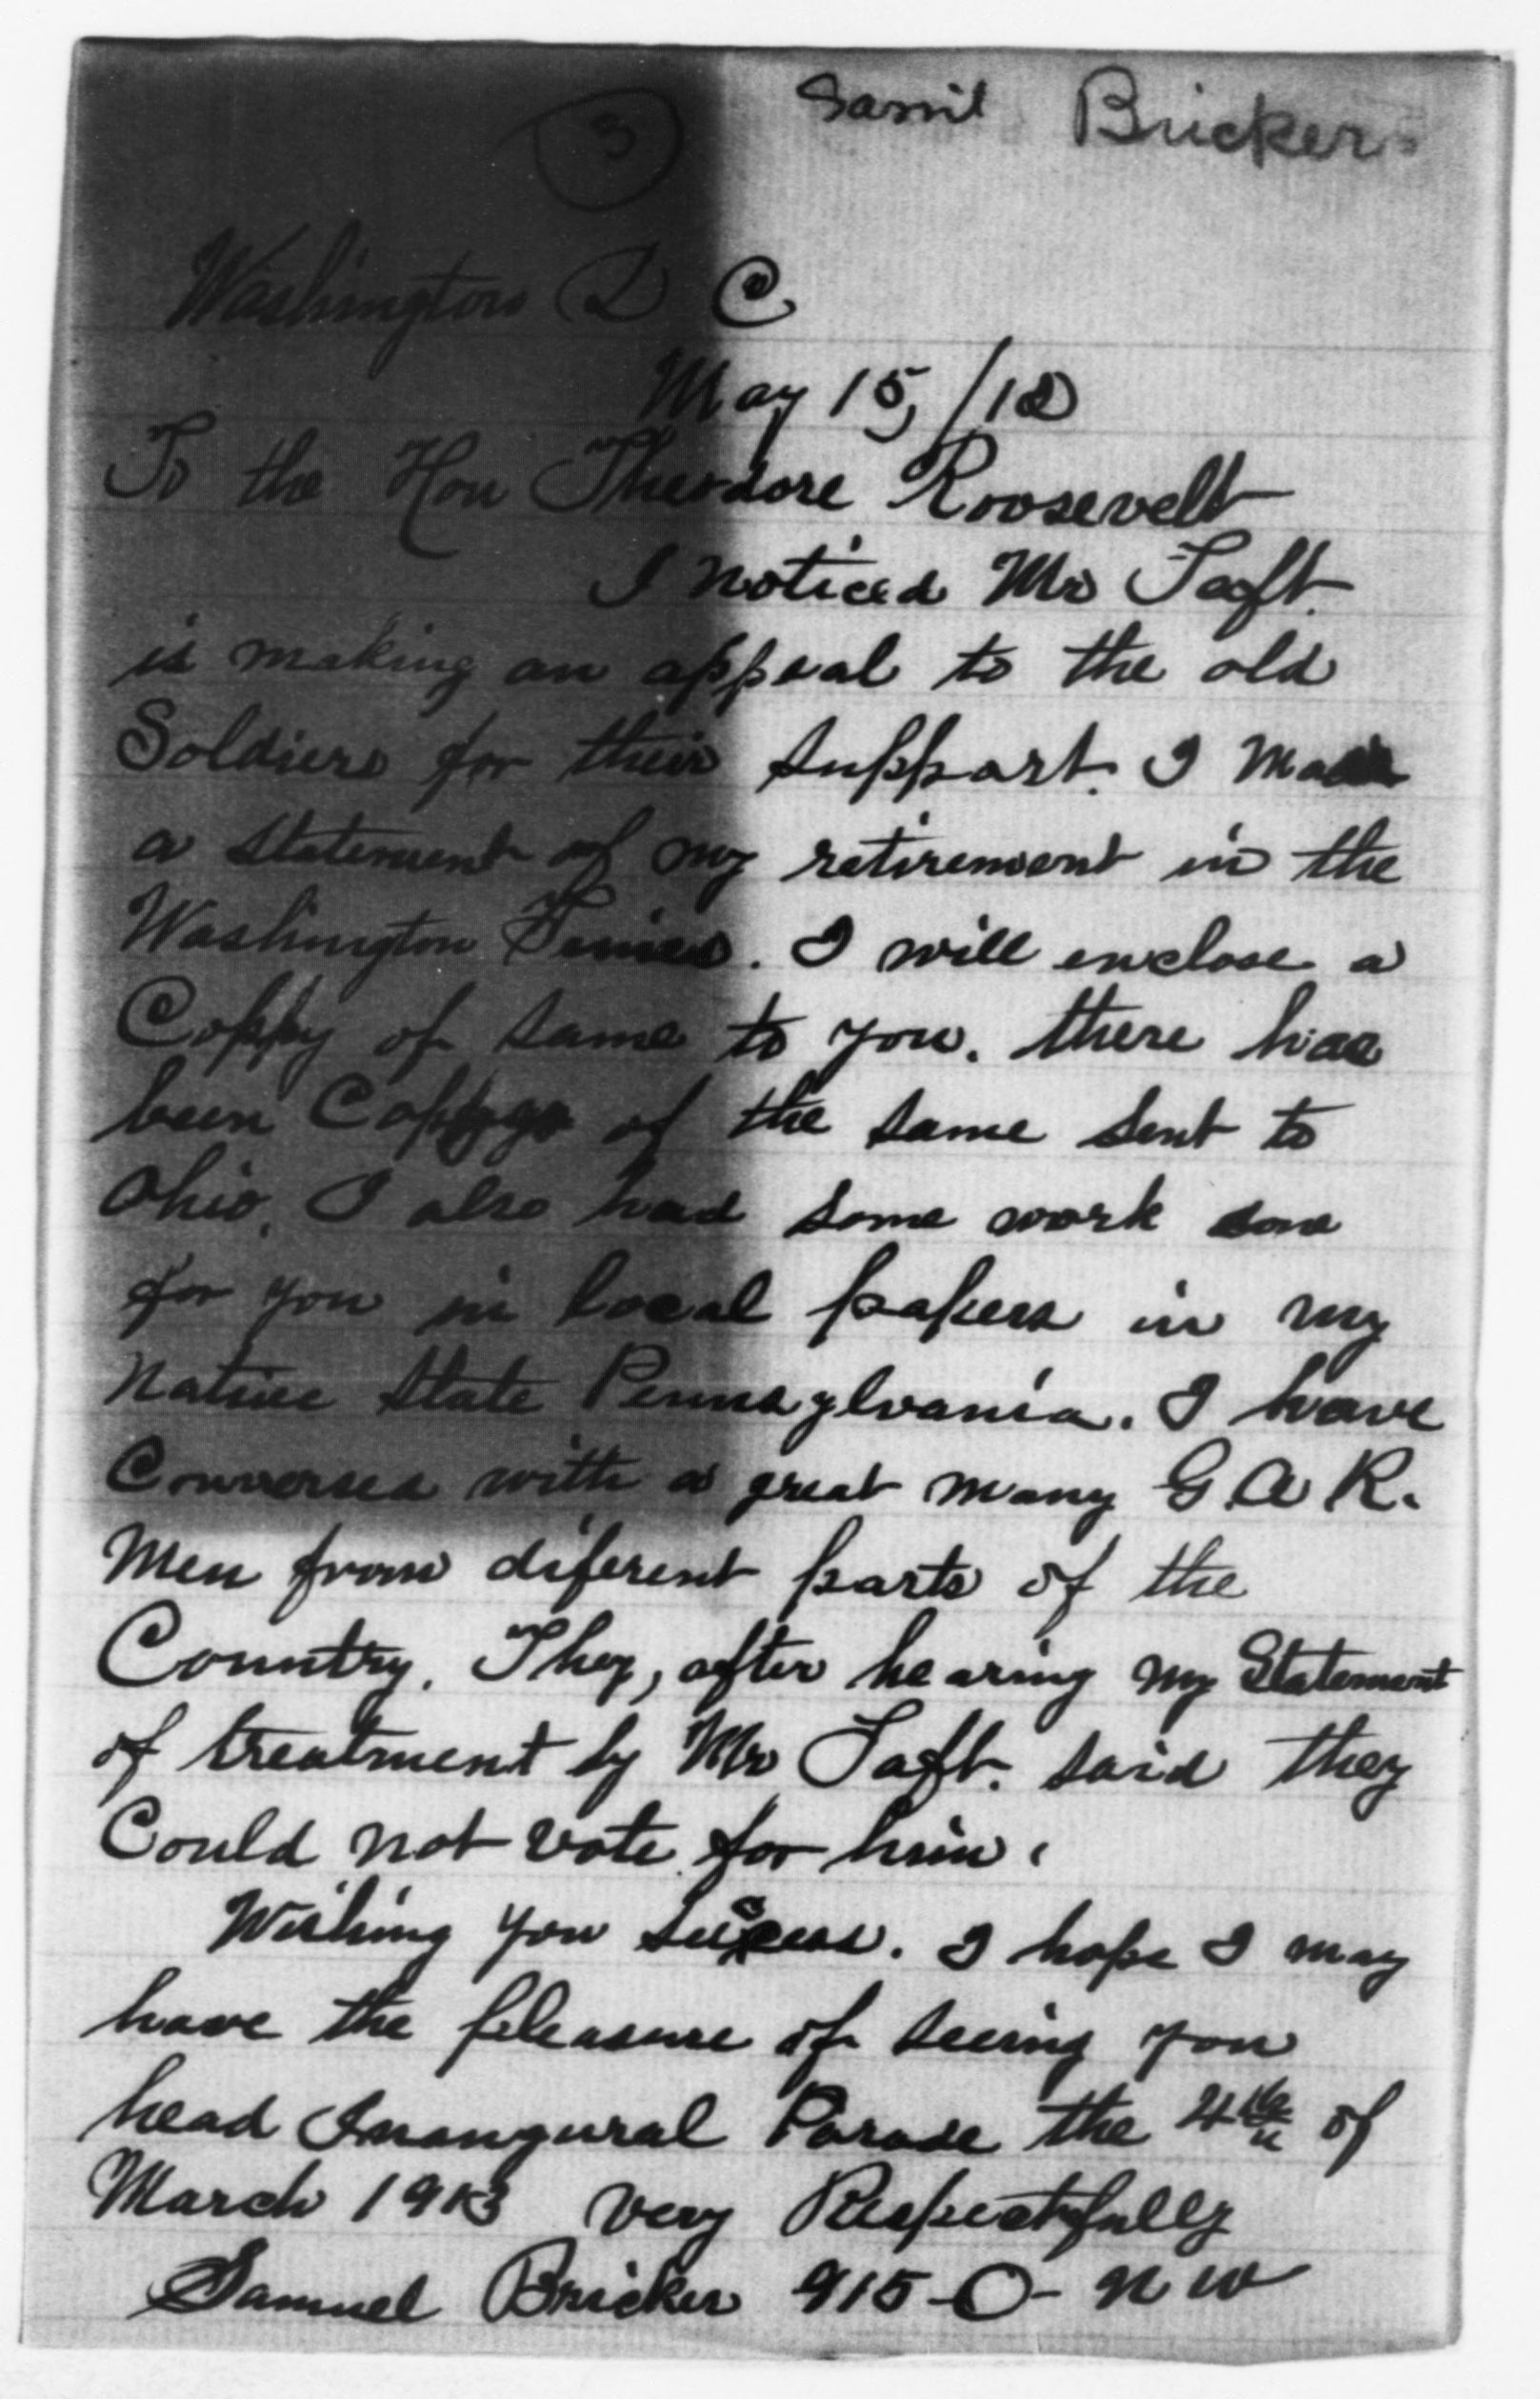 Saml Bricker
3
Washington D C
May 15, /12
To the Hon Theodore Roosevelt
I noticed Mr Taft.
is making an appeal to the old
Soldiers for their support. I made
a statement of my retirement in the
Washington Times. I will enclose a
Coppy of same to you. there has
been Coppys of the same sent to
Ohio. I also had some work done
for you in local papers in my
native state Pennsylvania. I have
Conversed with a great many G. A R.
Men from diferent parts of the
Country. They, after hearing my Statement
of treatment by Mr Taft. said they
Could not vote for him.
Wishing you success. I hope I may
have the pleasure of seeing you
head Inaugural Parade the 4th of
March 1913 very Respectfully
Samuel Bricker 915-O- N W